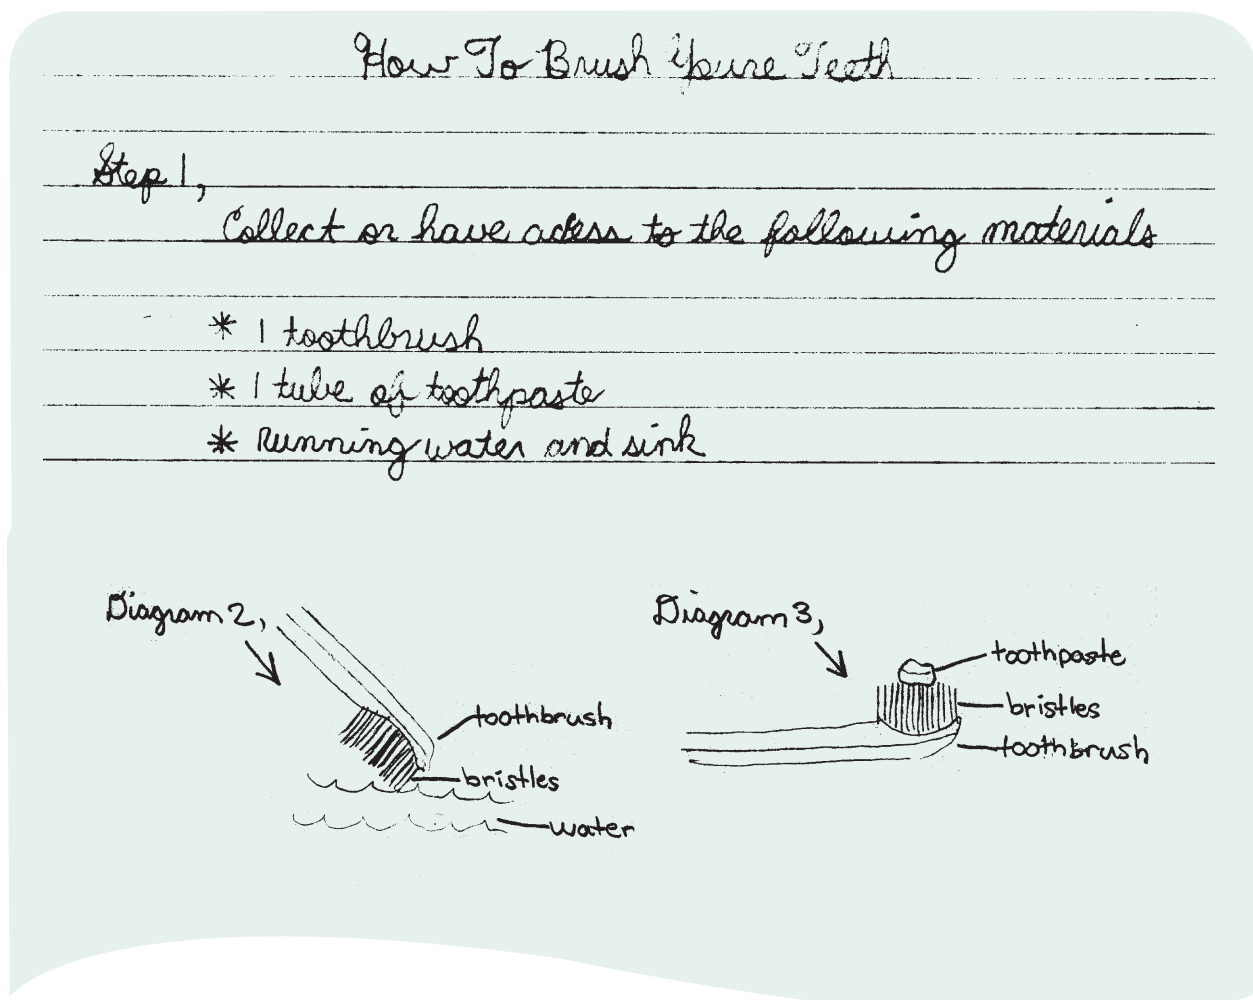 How To Brush Youre Teeth
Step 1,
Collect or have adess to the following materials
* 1 toothbrush
* 1 tube of toothpaste
* Running water and sink
Diagram 2,
toothbrush
bristles
water
Diagram 3,
toothpaste
bristles
toothbrush